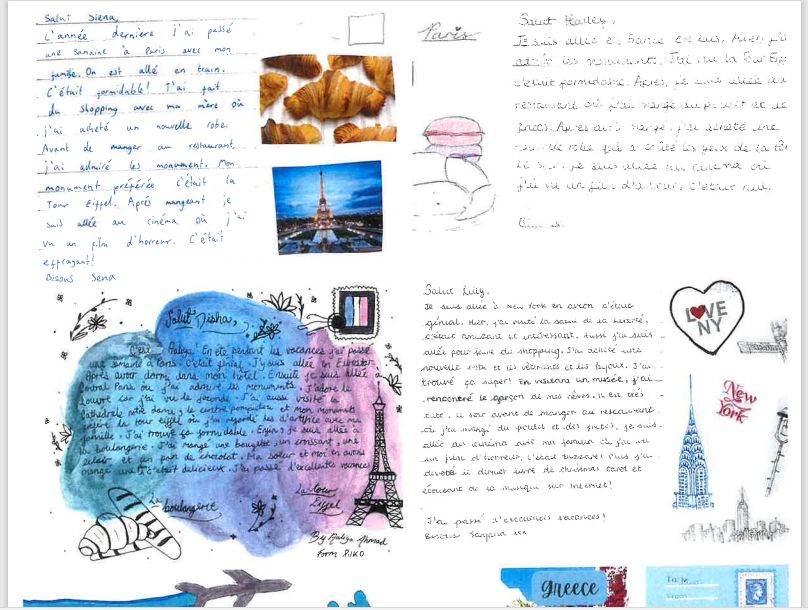 Salut Siena,
L'année dernière j'ai passé
une semaine à Paris avec mon
famille. On est allé en train.
C'était formidable! J'ai fait
du shopping avec ma mère où
j'ai acheté un nouvelle robe.
Avant de manger au restaurant
j'ai admiré les monument. Mon
monument préférée c'était la
Tour Eiffel. Après mangeant je
suis allée au cinéma où j'ai
vu un film d'horreur. C'était
effragant!
Bisous Sena
Paris
Salut
Je suis allée en France en bus. Hier, j'ai
admiré les monuments. J'ai vu la Tour Eiff
c'était formidable. Après, je suis allée au
restaurant où j'ai mangé du poulet et de
frites. Après avoir mangé, j'ai acheté une
nouvelle robe qui a coûté les yeux de la
je suis allée au cinéma où
j'ai vu un film d'amour. C'était nul.
Salut Disha,
C'est Aaliya! En été pendant les vacances j'ai passé
une semaine à Paris. C'était génial. J'y suis allée en Eurostar.
Après avoir dormi dans mon hôtel. Ensuite je suis allée à
Central Paris où j'ai admiré les monuments. J'adore le
Louvre car j'ai vu le Joconde. J'ai aussi visité la
cathédrale notre dame, le centre pompidou et mon monument
préféré la tour eiffel où j'ai regardé les d'artifice avec ma
famille. J'ai trouvé ça formidable. Enfin, je suis allée à
la boulangerie. J'ai mangé une baguette, un croissant, une
éclair et un pain de chocolat. Ma soeur et moi en avons
mangé c'était délicieux. J'ai passé d'excellents vacances
La boulangerie
La tour
Eiffel
By Aaliya Ahmad
Form RIKO
Salut Lilly,
Je suis allée à New York en avion c'était
génial. Hier, j'ai visité la statue de la liberté.
C'était amusant et intéressant. Aussi j'ai suis
allée pour faire du shopping. J'ai acheté une
nouvelle robe et les vêtements et les bijoux. J'ai
trouvé ça super! En visitant un musée, j'ai
rencontré le garçon de mes rêves. Il est très
cute. Le soir avant de manger au restaurant
où j'ai mangé du poulet et des frites, je suis
allée au cinéma avec ma maman où j'ai vu
un film d'horreur. C'était bizarre! Puis j'ai
le dernier livre de Christmas Carol et
écoutant de la musique sur Internet!
J'ai passé d'excellents vacances!
Bisous xxx
LOVE
NY
New
York
greece
To
From